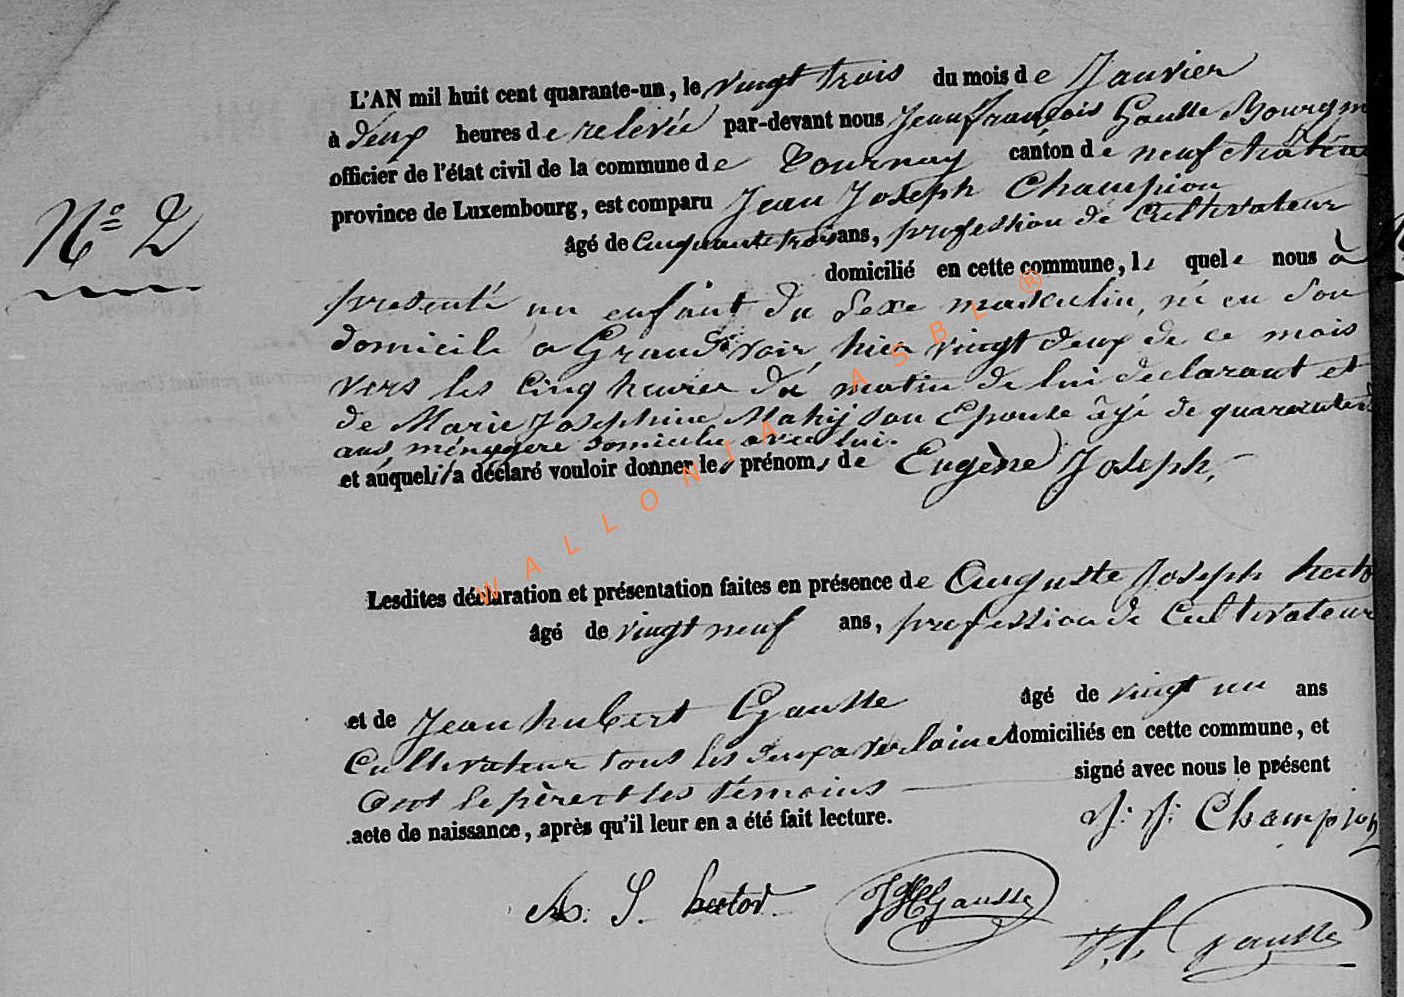 L'AN mil huit cent quarante-un, le vingt trois du mois de Janvier
à deux heures de relevée par-devant nous Jean françois Gausse Bourgm
officier de l'état civil de la commune de Tournay canton de neufchâteau
province de Luxembourg, est comparu Jean Joseph Champion
N° 2
âgé de Cinquante trois ans, profession de Cultivateur
domicilié en cette commune, le quel nous à
presenté un enfant du Sexe masculin, né en Son
domicile a Grandvoir, hier vingt deux de ce mois
vers les Cinq heures du matin de lui déclarant et
de Marie Josephine Mahij son Epouse âgé de quarante
ans, ménagere domicilié avec lui.
et auquel il a déclaré vouloir donner les prénoms de Eugène Joseph,
WALLONIA ASBL ®
Lesdites déclaration et présentation faites en présence de Auguste Joseph hector
âgé de vingt neuf ans, profession de Cultivateur
et de Jean hubert Gausse âgé de vingt un ans
Cultivateur tous les deux a verlaine domiciliés en cette commune, et
Ont le père et les témoins signé avec nous le présent
acte de naissance, après qu'il leur en a été fait lecture.
J: J: Champion
A. J. hector JHGausse
J. f. Gausse